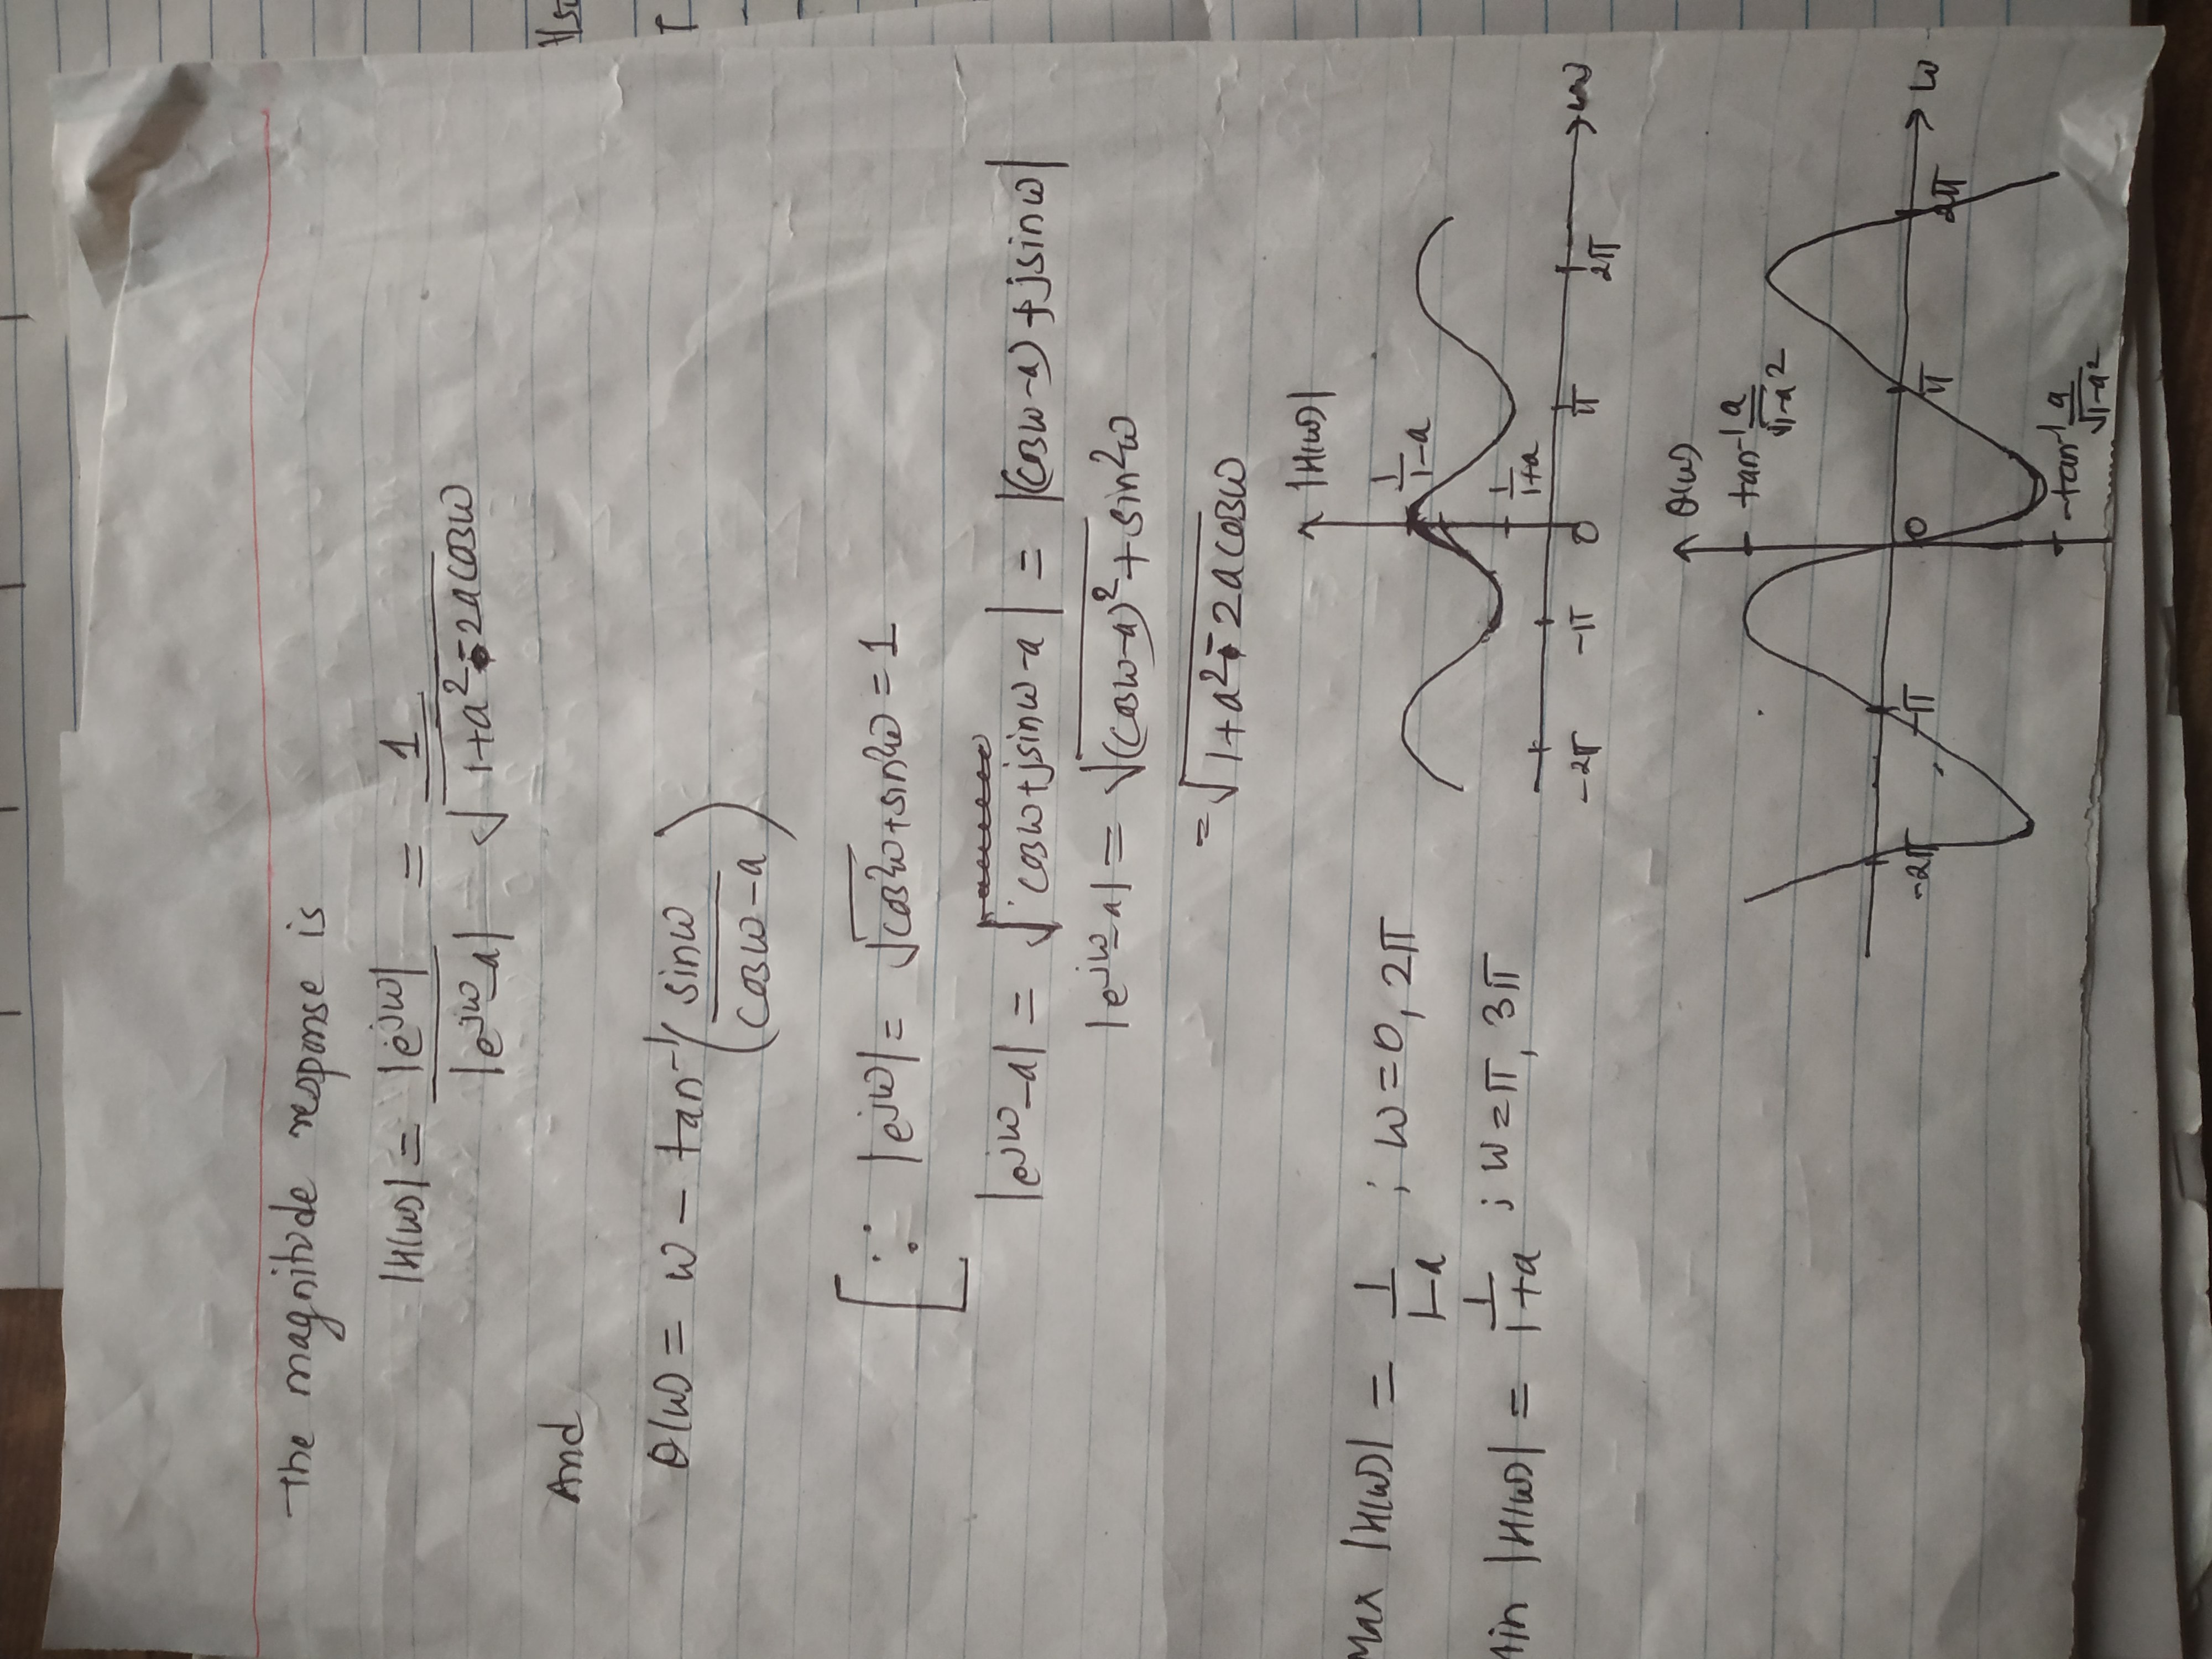 The magnitude response is
|H(ω)| = |e^jω| / |e^jω - a| = 1 / √(1+a² - 2a cosω)
And
θ(ω) = ω - tan⁻¹(sinω / (cosω - a))
[∵ |e^jω| = √(cos²ω + sin²ω) = 1
|e^jω - a| = √ cosω + jsinω - a| = |(cosω - a) + jsinω|
|e^jω - a| = √((cosω - a)² + sin²ω)
= √(1+a² - 2a cosω)
|H(ω)|
Max |H(ω)| = 1/(1-a) ; ω = 0, 2π
1/(1-a)
|H(ω)| = 1/(1+a) ; ω = π, 3π
1/(1+a)
-2π -π 0 π 2π ω
θ(ω)
tan⁻¹ a/√(1-a²)
-2π -π 0 π 2π ω
-tan⁻¹ a/√(1-a²)